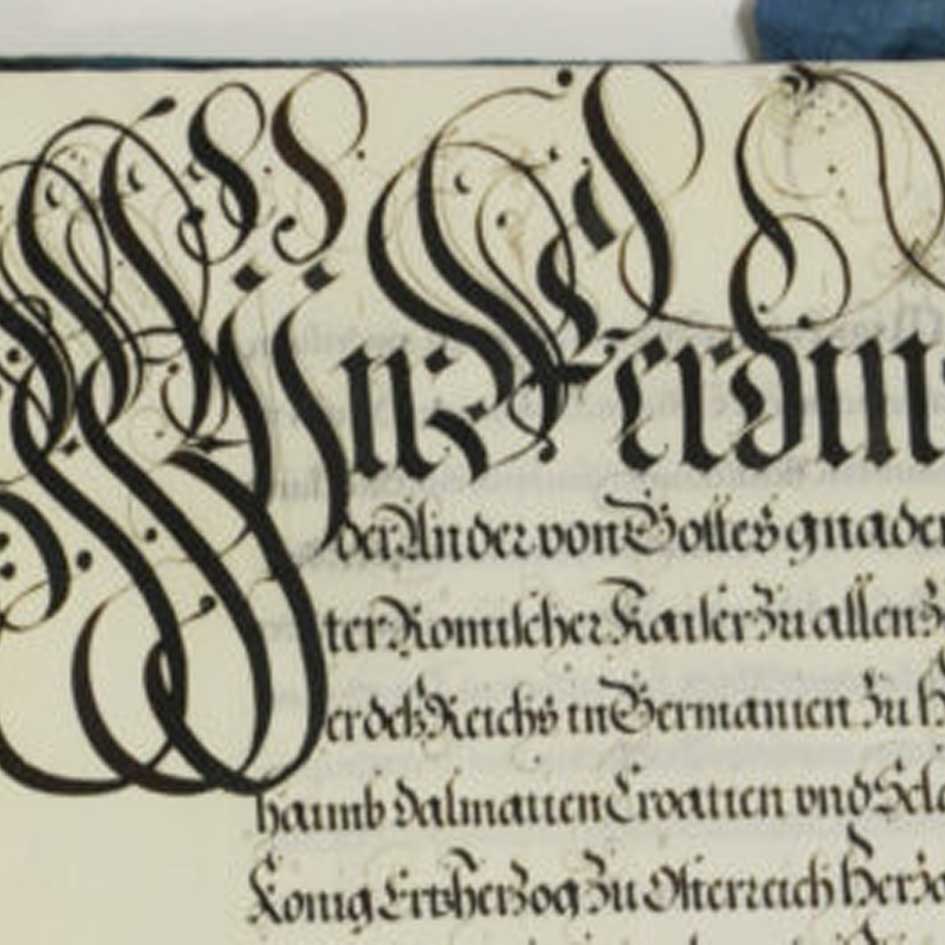 Wir Ferdin
der Ander von Gottes gnaden
ter Römischer Kaiser zu allen Z
er deß Reichs in Germanien zu H
haimb Dalmatien Croatien vnd Scla
König Ertzherzog zu Österreich Herzo